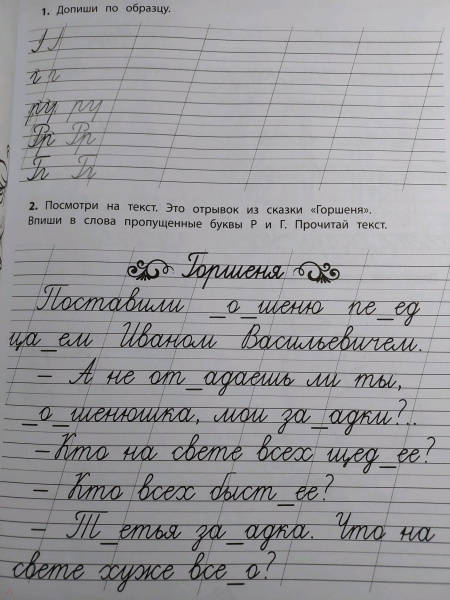 1. Допиши по образцу.
г г
ру ру
Рр Рр
Гг Гг
2. Посмотри на текст. Это отрывок из сказки «Горшеня».
Впиши в слова пропущенные буквы Р и Г. Прочитай текст.
Горшеня
Поставили _о_шеню пе_ед
ца_ем Иваном Васильевичем.
– А не от_адаешь ли ты,
_о_шенюшка, мои за_адки?..
– Кто на свете всех щед_ее?
– Кто всех быст_ее?
– Т_етья за_адка. Что на
свете хуже все_о?